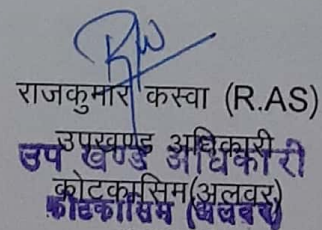 राजकुमार कस्वा (R.AS)
उपखण्ड अधिकारी
उप खण्ड अधिकारी
कोटकासिम(अलवर)
कोटकासिम (अलवर)